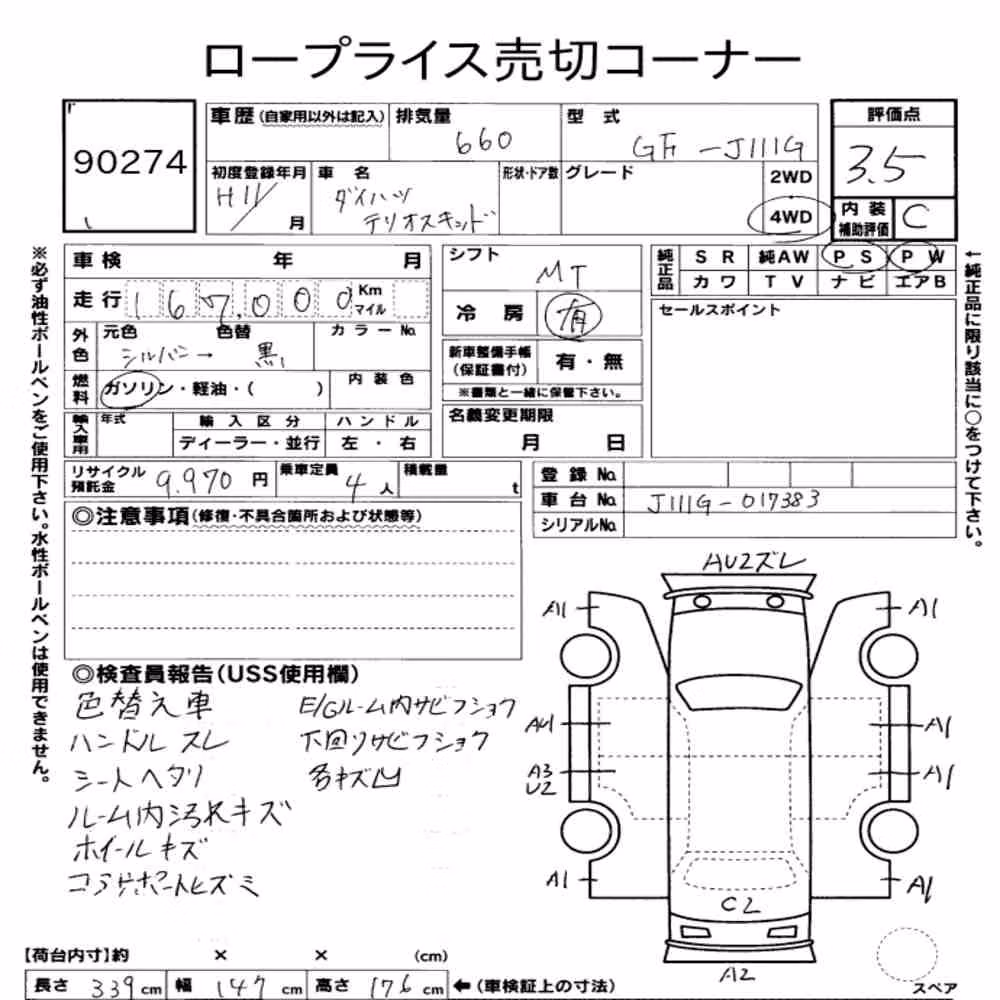 ロープライス売切コーナー
90274
車歴(自家用以外は記入) 排気量 660 型式 GF-J111G 評価点 3.5
初度登録年月 H11/ 月 車名 ダイハツ テリオスキッド 形状・ドア数 グレード 2WD 4WD 内装補助評価 C
※必ず油性ボールペンをご使用下さい。水性ボールペンは使用できません。
車検 年 月
走行 167,000 Km マイル
外色 元色 シルバー→ 色替 黒 カラーNo.
燃料 ガソリン・軽油・( ) 内装色
輸入車用 年式 輸入区分 ディーラー・並行 ハンドル 左・右
シフト MT
冷房 有
新車整備手帳(保証書付) 有・無
※書類と一緒に保管下さい。
名義変更期限 月 日
純正品 SR 純AW PS PW
カワ TV ナビ エアB
セールスポイント
←純正品に限り該当に○をつけて下さい。
リサイクル預託金 9,970 円 乗車定員 4人 積載量 t
登録No.
車台No. J111G-017383
シリアルNo.
◎注意事項(修復・不具合箇所および状態等)
◎検査員報告(USS使用欄)
色替え車 E/Gルーム内サビフショク
ハンドルスレ 下回りサビフショク
シートヘタリ 各キズ凹
ルーム内汚れキズ
ホイールキズ
コアサポートヒズミ
AU2ズレ
A1 A1
AU1 A1
A3 U2 A1
A1 A1
C2
A2
スペア
【荷台内寸】約 × × (cm)
長さ 339 cm 幅 147 cm 高さ 176 cm ←(車検証上の寸法)